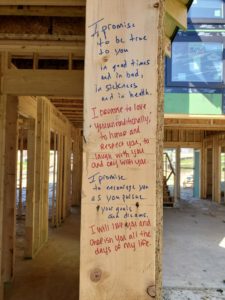 I promise
to be true
to you
in good times
and in bad,
in sickness
and in health.
I promise to love
you unconditionally,
to honor and
respect you, to
laugh with you
and cry with you.
I promise
to encourage you
as you pursue
your goals
and dreams.
I will love you and
cherish you all the
days of my life.